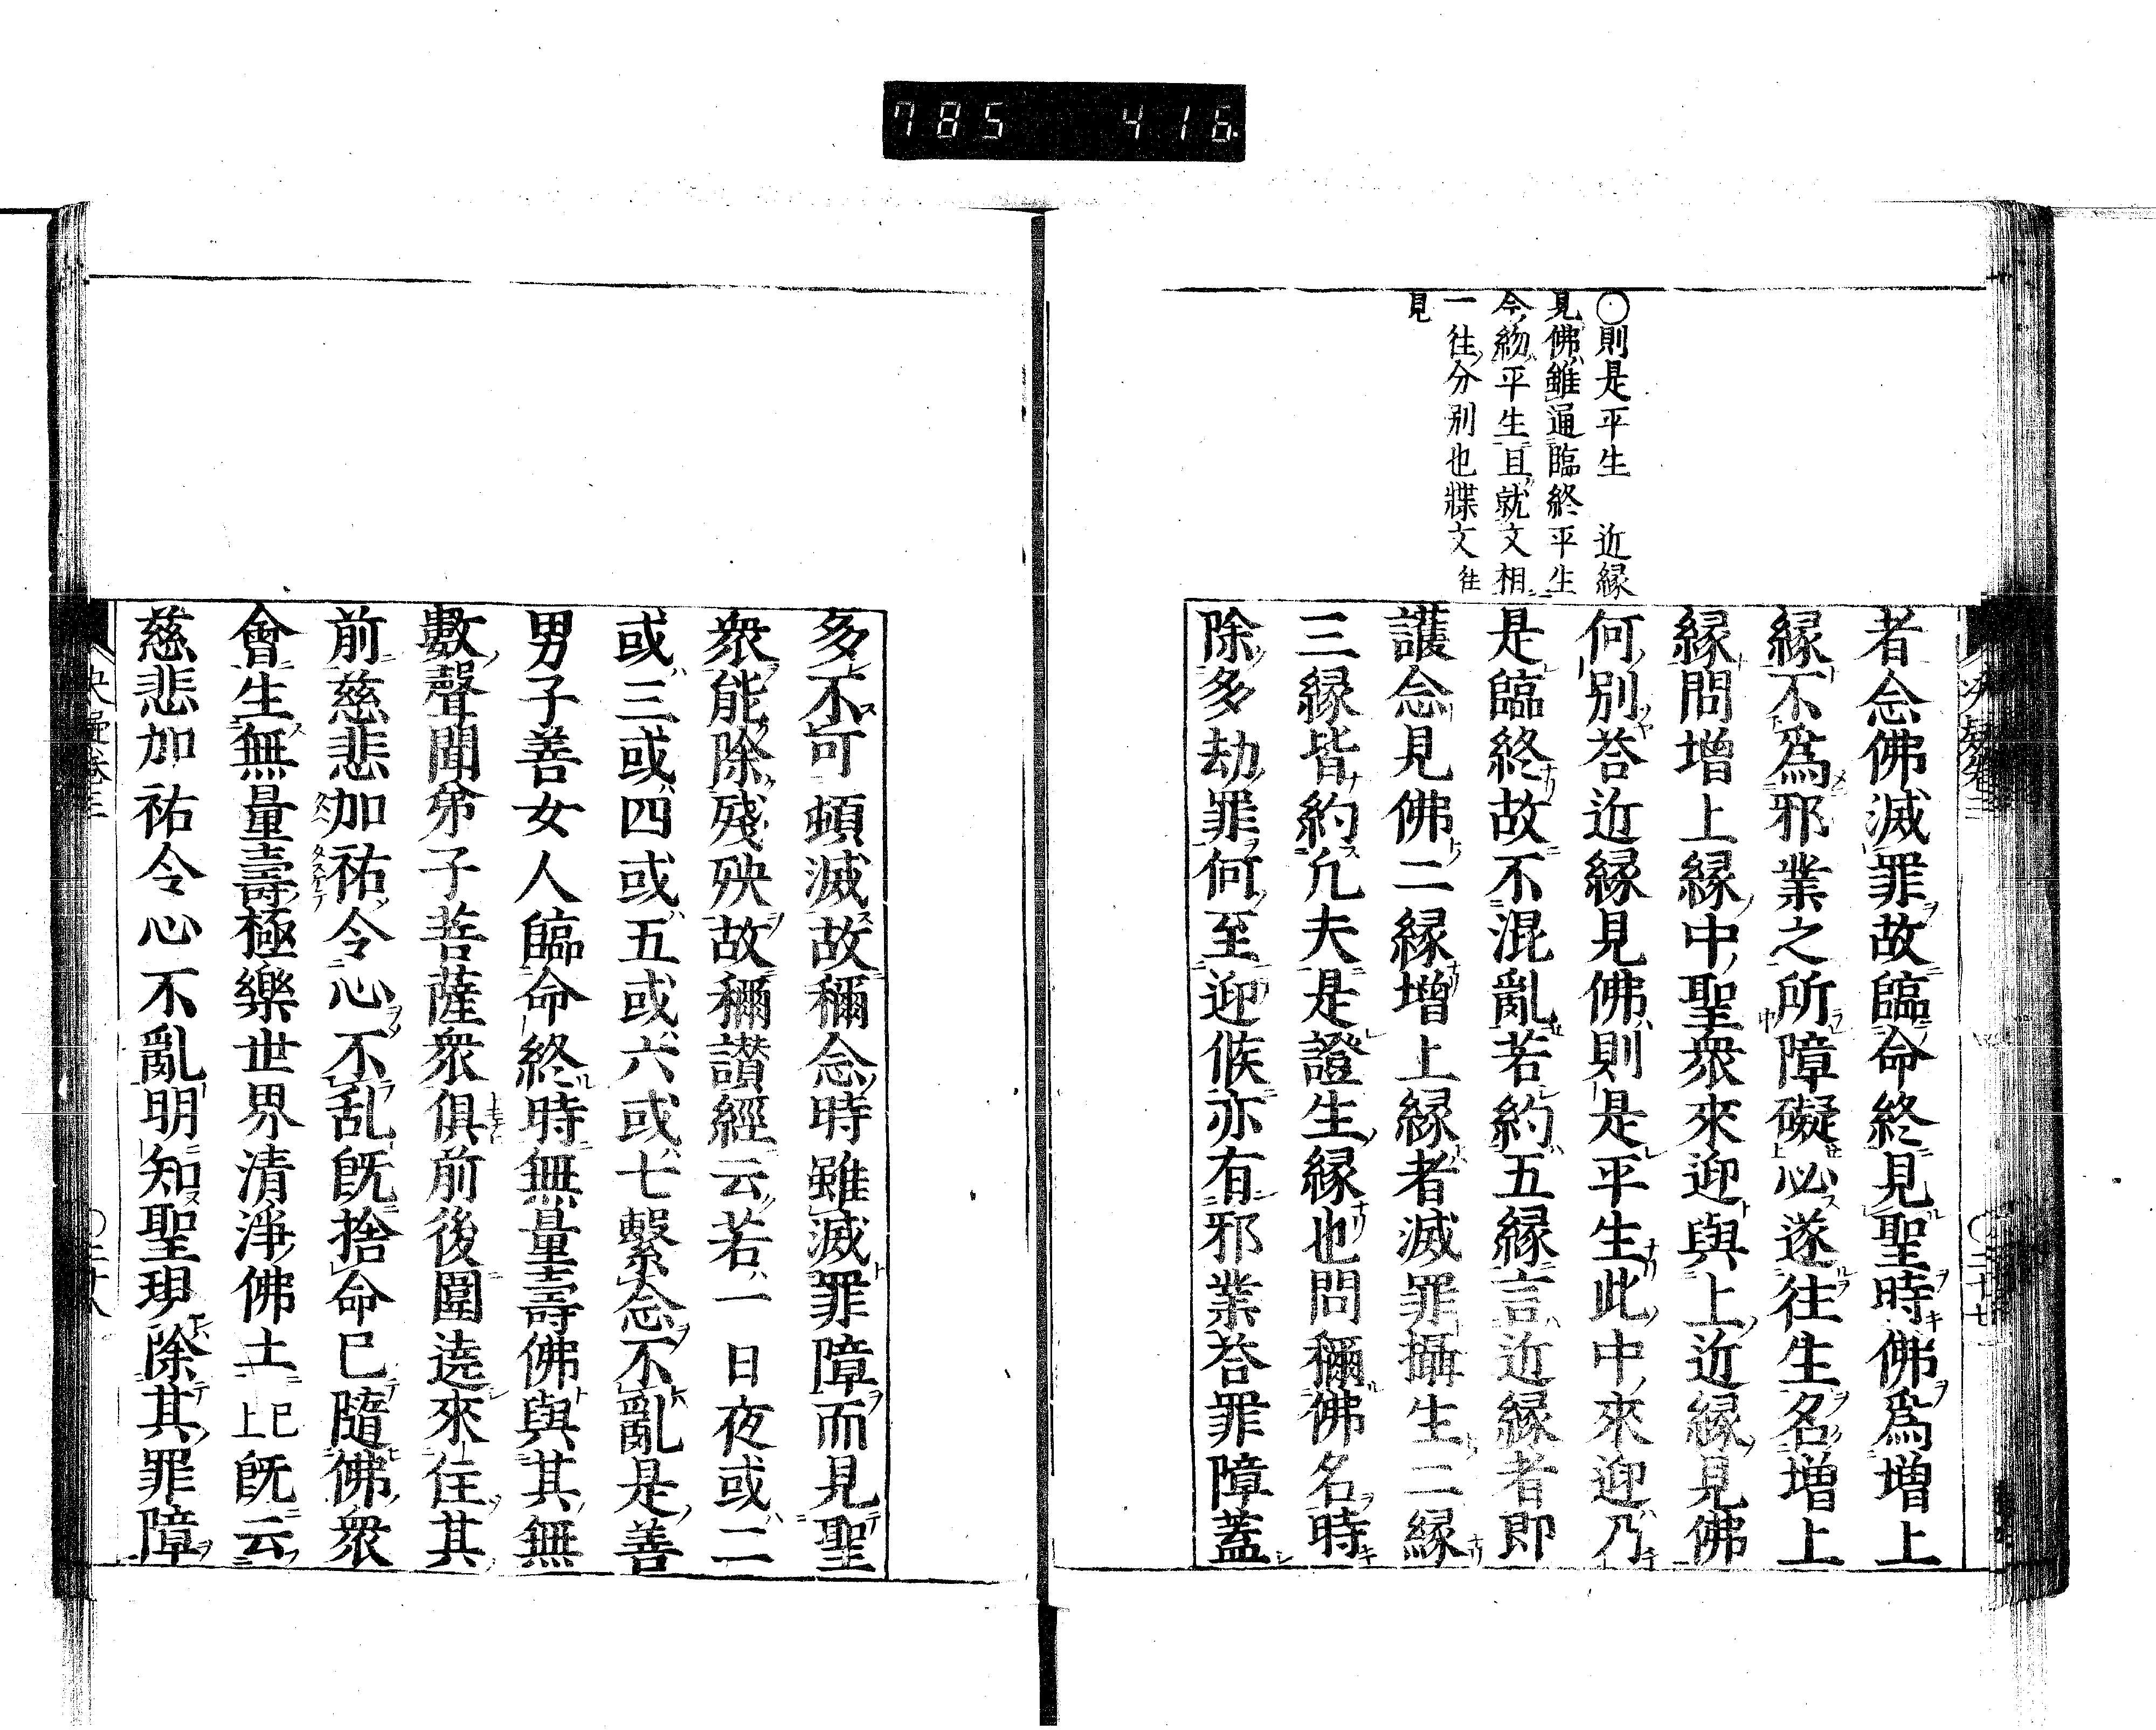 785 416
〇則是平生 近縁
見佛雖通臨終平生
今約平生且就文相
一往分別也牒文往
見
者念佛滅罪故臨命終見聖時佛爲増上
縁不爲邪業之所障礙必遂往生名増上
縁問増上縁中聖衆來迎與上近縁見佛
何別荅近縁見佛則是平生此中來迎乃
是臨終故不混亂若約五縁言近縁者即
護念見佛二縁増上縁者滅罪攝生二縁
三縁皆約凢夫是證生縁也問稱佛名時
除多劫罪何至迎候亦有邪業荅罪障蓋
多不可頓滅故稱念時雖滅罪障而見聖
衆能除殘殃故稱讃經云若一日夜或二
或三或四或五或六或七繫念不亂是善
男子善女人臨命終時無量壽佛與其無
數聲聞弟子菩薩衆俱前後圍遶來住其
前慈悲加祐令心不乱旣捨命已隨佛衆
會生無量壽極樂世界清淨佛土已上旣云
慈悲加祐令心不亂明知聖現除其罪障